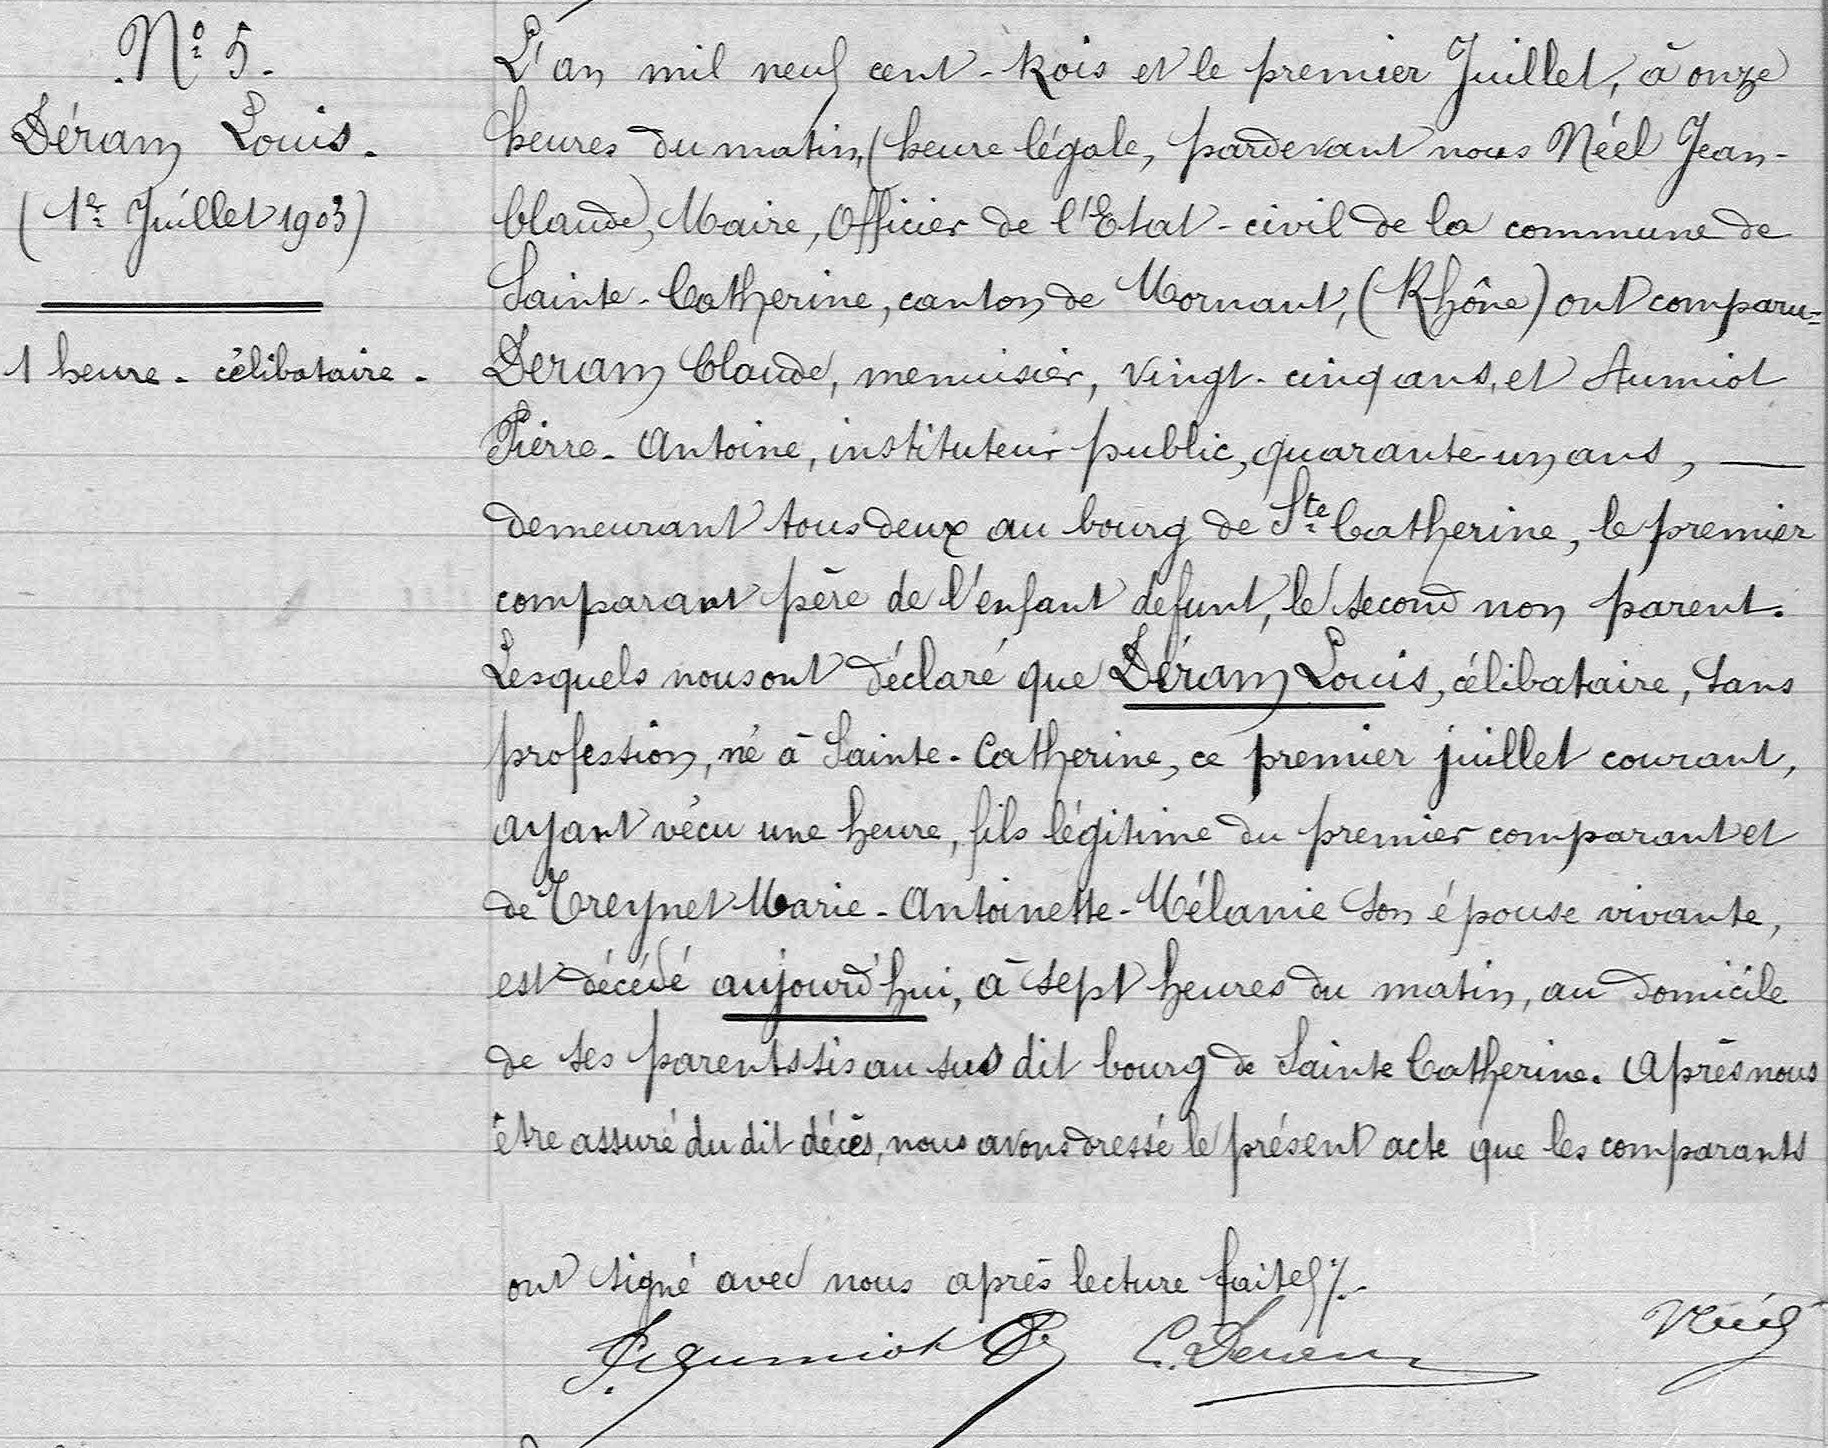 N° 5.
Déram Louis.
(1er Juillet 1903)
1 heure - célibataire -
L'an mil neuf cent-trois et le premier Juillet, à onze
heures du matin, (heure légale, pardevant nous Néel Jean-
Claude), Maire, Officier de l'Etat-civil de la commune de
Sainte-Catherine, canton de Mornant, (Rhône) ont comparu =
Deram Claude, menuisier, vingt-cinq ans, et Aumiot
Pierre-Antoine, instituteur public, quarante-un ans, —
demeurant tous deux au bourg de Ste Catherine, le premier
comparant père de l'enfant défunt, le second non parent.
Lesquels nous ont déclaré que Déram Louis, célibataire, sans
profession, né à Sainte-Catherine, ce premier juillet courant,
ayant vécu une heure, fils légitime du premier comparant et
de Treynet Marie-Antoinette-Mélanie son épouse vivante,
est décédé aujourd'hui, à sept heures du matin, au domicile
de ses parents sis au sus dit bourg de Sainte Catherine. Après nous
être assuré du dit décès, nous avons dressé le présent acte que les comparants
ont signé avec nous après lecture faite ./.
Aumiot C. Deram Néel